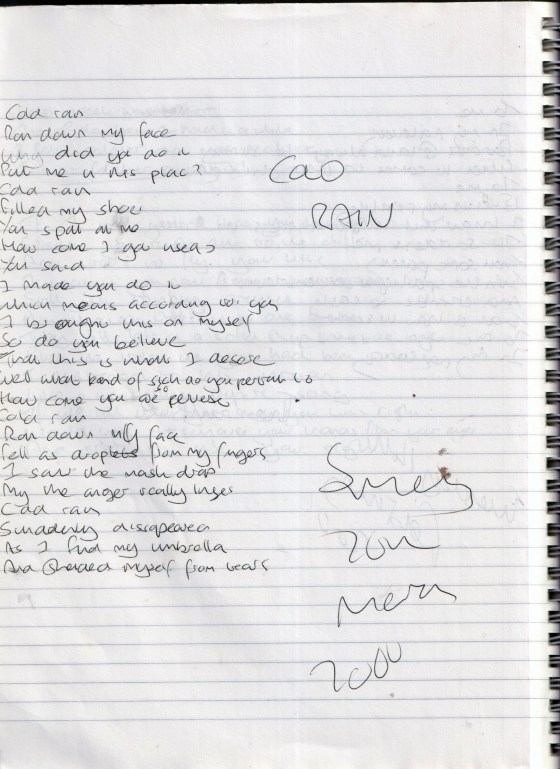 Cold rain
Ran down my face
Why did you do it
Put me in this place?
Cold rain
filled my shoe
You spat at me
How come I got used
You said
I made you do it
Which means according to you
I brought this on myself
So do you believe
That this is what I deserve
Well what kind of sick do you
How come you are so perverse
Cold rain
Ran down my face
fell as droplets from my fingers
I saw the mask drop
My the anger really
Cold rain
Suddenly dissapeared
As I find my umbrella
And shelded myself from tears
Cold
RAIN
20th
March
2000